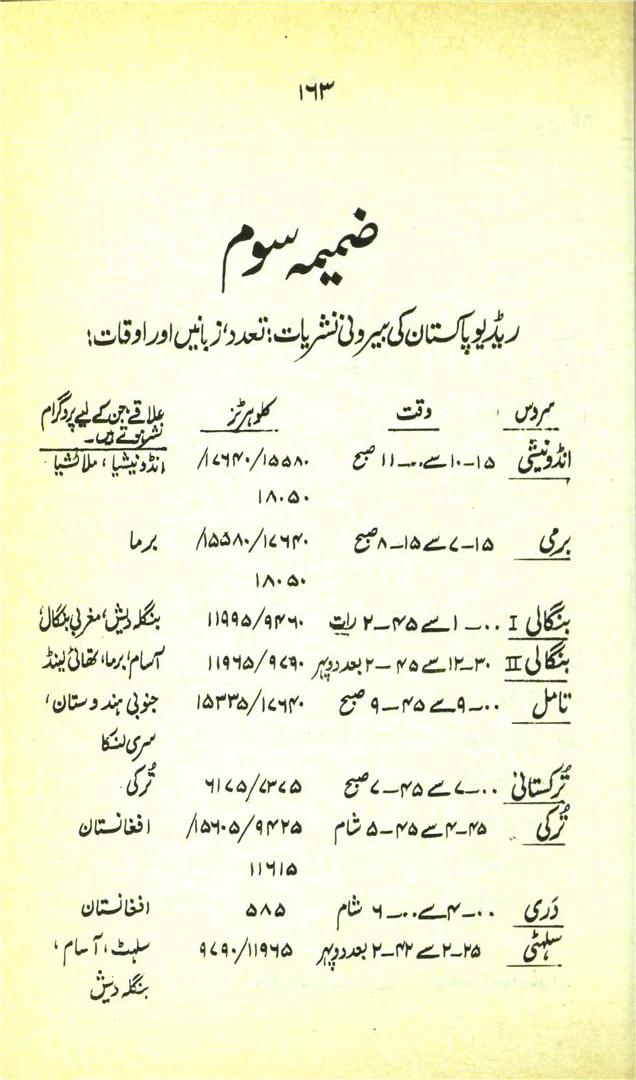 ۱۶۳
ضمیمہ سوم
ریڈیو پاکستان کی بیرونی نشریات: تعدد، زبانیں اور اوقات:
سروس وقت کلوہرٹز علاقے جن کے لیے پروگرام
نشر ہوتے ہیں۔
انڈونیشی ۱۵–۱۰ سے ۰۰–۱۱ صبح ۱۷۶۴۰/۱۵۵۸۰/ انڈونیشیا، ملائشیا
۱۸۰۵۰
برمی ۱۵–۷ سے ۱۵–۸ صبح ۱۵۵۸۰/۱۷۶۴۰/ برما
۱۸۰۵۰
بنگالی I ۰۰–۱ سے ۴۵–۲ رات ۱۱۹۹۵/۹۴۶۰ بنگلہ دیش، مغربی بنگال،
بنگالی II ۳۰–۱۲ سے ۴۵–۲ بعد دوپہر ۱۱۹۶۵/۹۷۹۰ آسام، برما، تھائی لینڈ
تامل ۰۰–۹ سے ۴۵–۹ صبح ۱۵۳۳۵/۱۷۶۴۰ جنوبی ہندوستان،
سری لنکا
تُرکستانی ۰۰–۷ سے ۴۵–۷ صبح ۶۱۷۵/۷۳۷۵ تُرکی
تُرکی ۴۵–۴ سے ۴۵–۵ شام ۱۵۶۰۵/۹۴۲۵/ افغانستان
۱۱۶۱۵
دَری ۰۰–۴ سے ۰۰–۶ شام ۵۸۵ افغانستان
سلہٹی ۲۵–۲ سے ۴۲–۲ بعد دوپہر ۹۷۹۰/۱۱۹۶۵ سلہٹ، آسام،
بنگلہ دیش